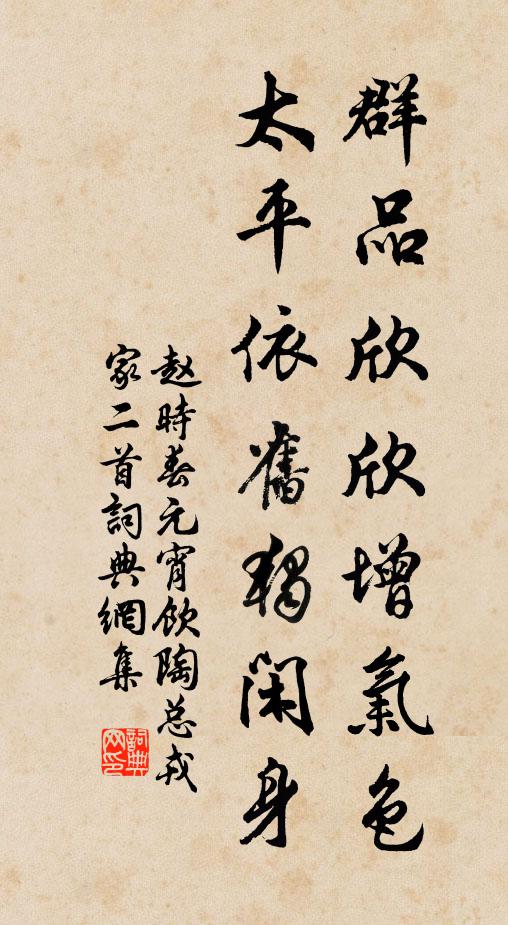 群品欣欣增氣色
太平依舊獨閑身
赵時春元宵飲陶总戎
家二首詞典網集
詞典網印